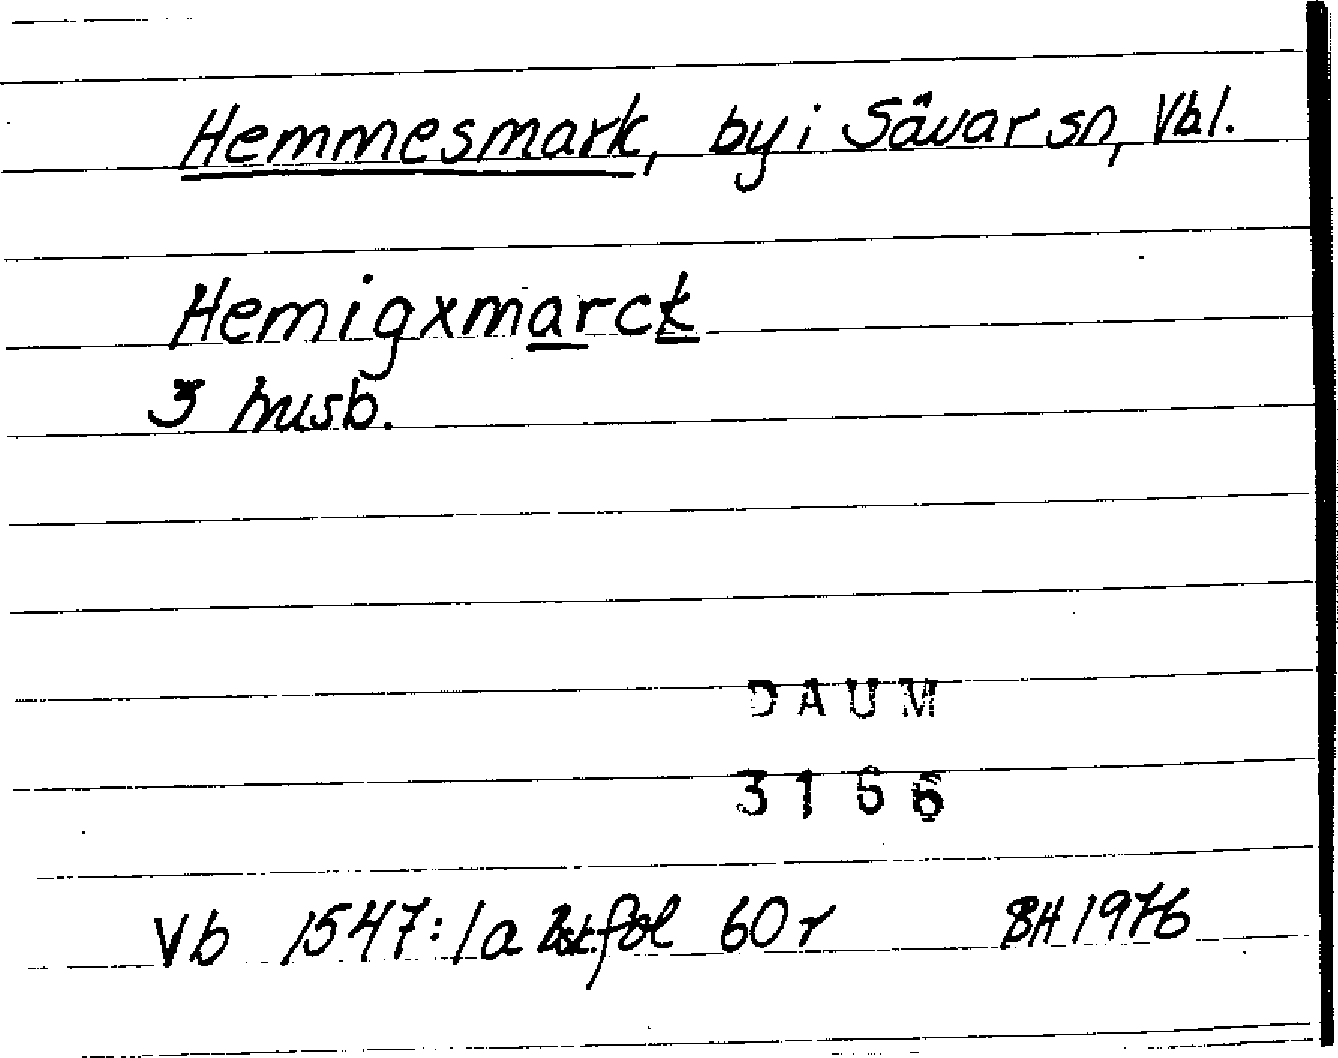 Hemmesmark, by i Sävar sn, Vbl.
Hemigxmarck
3 husb.
DAUM
3166
Vb 1547:1a Bst fol 60 r BH 1976